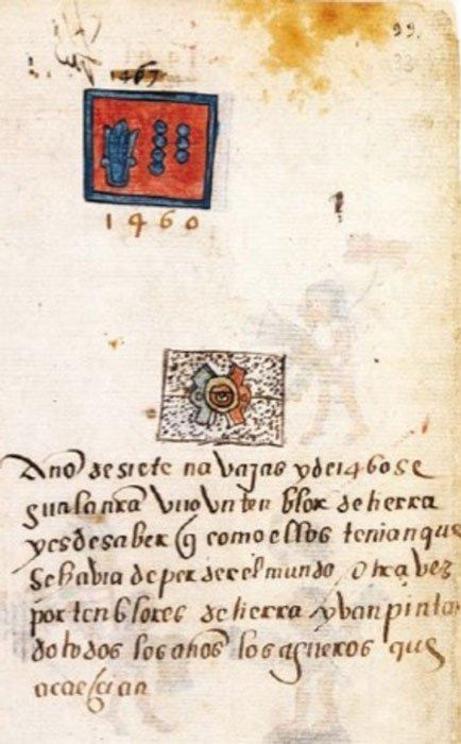 99.
33
1467
1460
Año de siete navajas y de 1460 se
gun la nra vuo vn ten blor de tierra
y es de saber q como ellos tenian que
se habia de perder el mundo otra vez
por tenblores de tierra yvan pinta
do todos los años los agueros que
acaescian